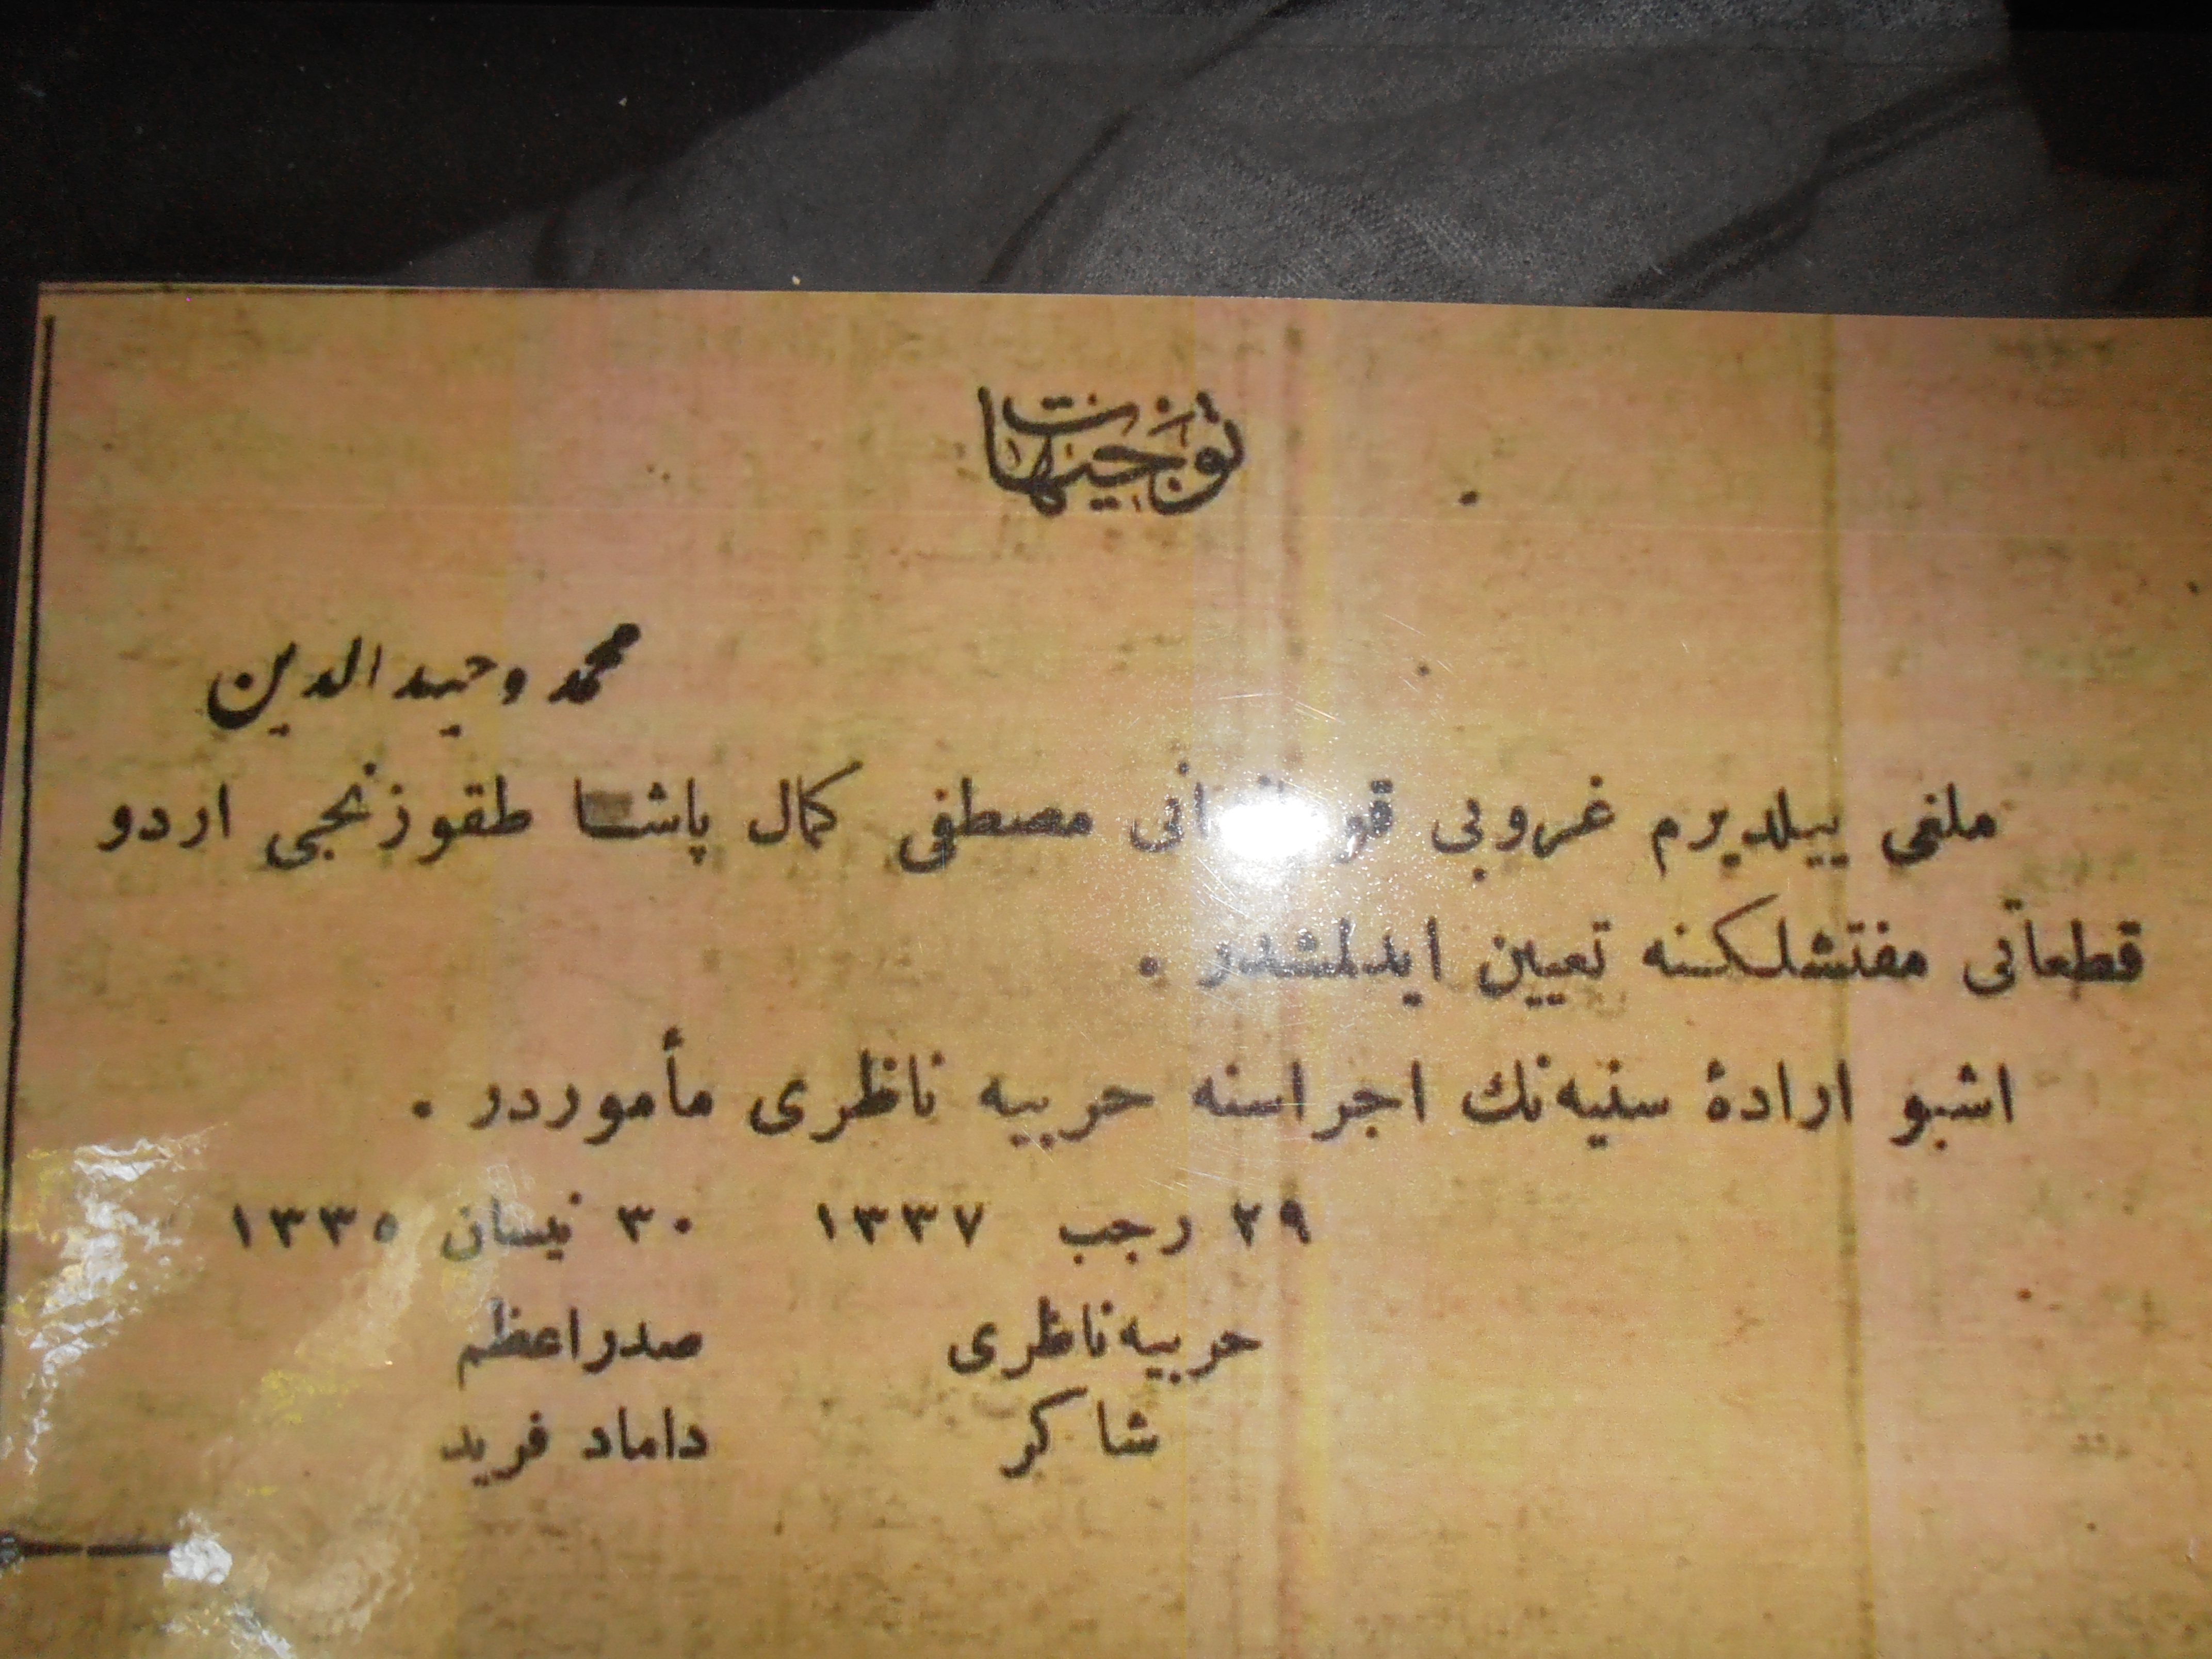 توجيهات
محمد وحيد الدين
ملغى ييلديرم غروبى مصطفى كمال پاشا طقوزنجى اردو
قطعاتى مفتشلكنه تعيين ايدلمشدر .
اشبو ارادۀ سنيه‌نك اجراسنه حربيه ناظرى مأموردر .
٢٩ رجب ١٣٣٧ ٣٠ نيسان ١٣٣٥
حربيه ناظرى صدراعظم
شاكر داماد فريد